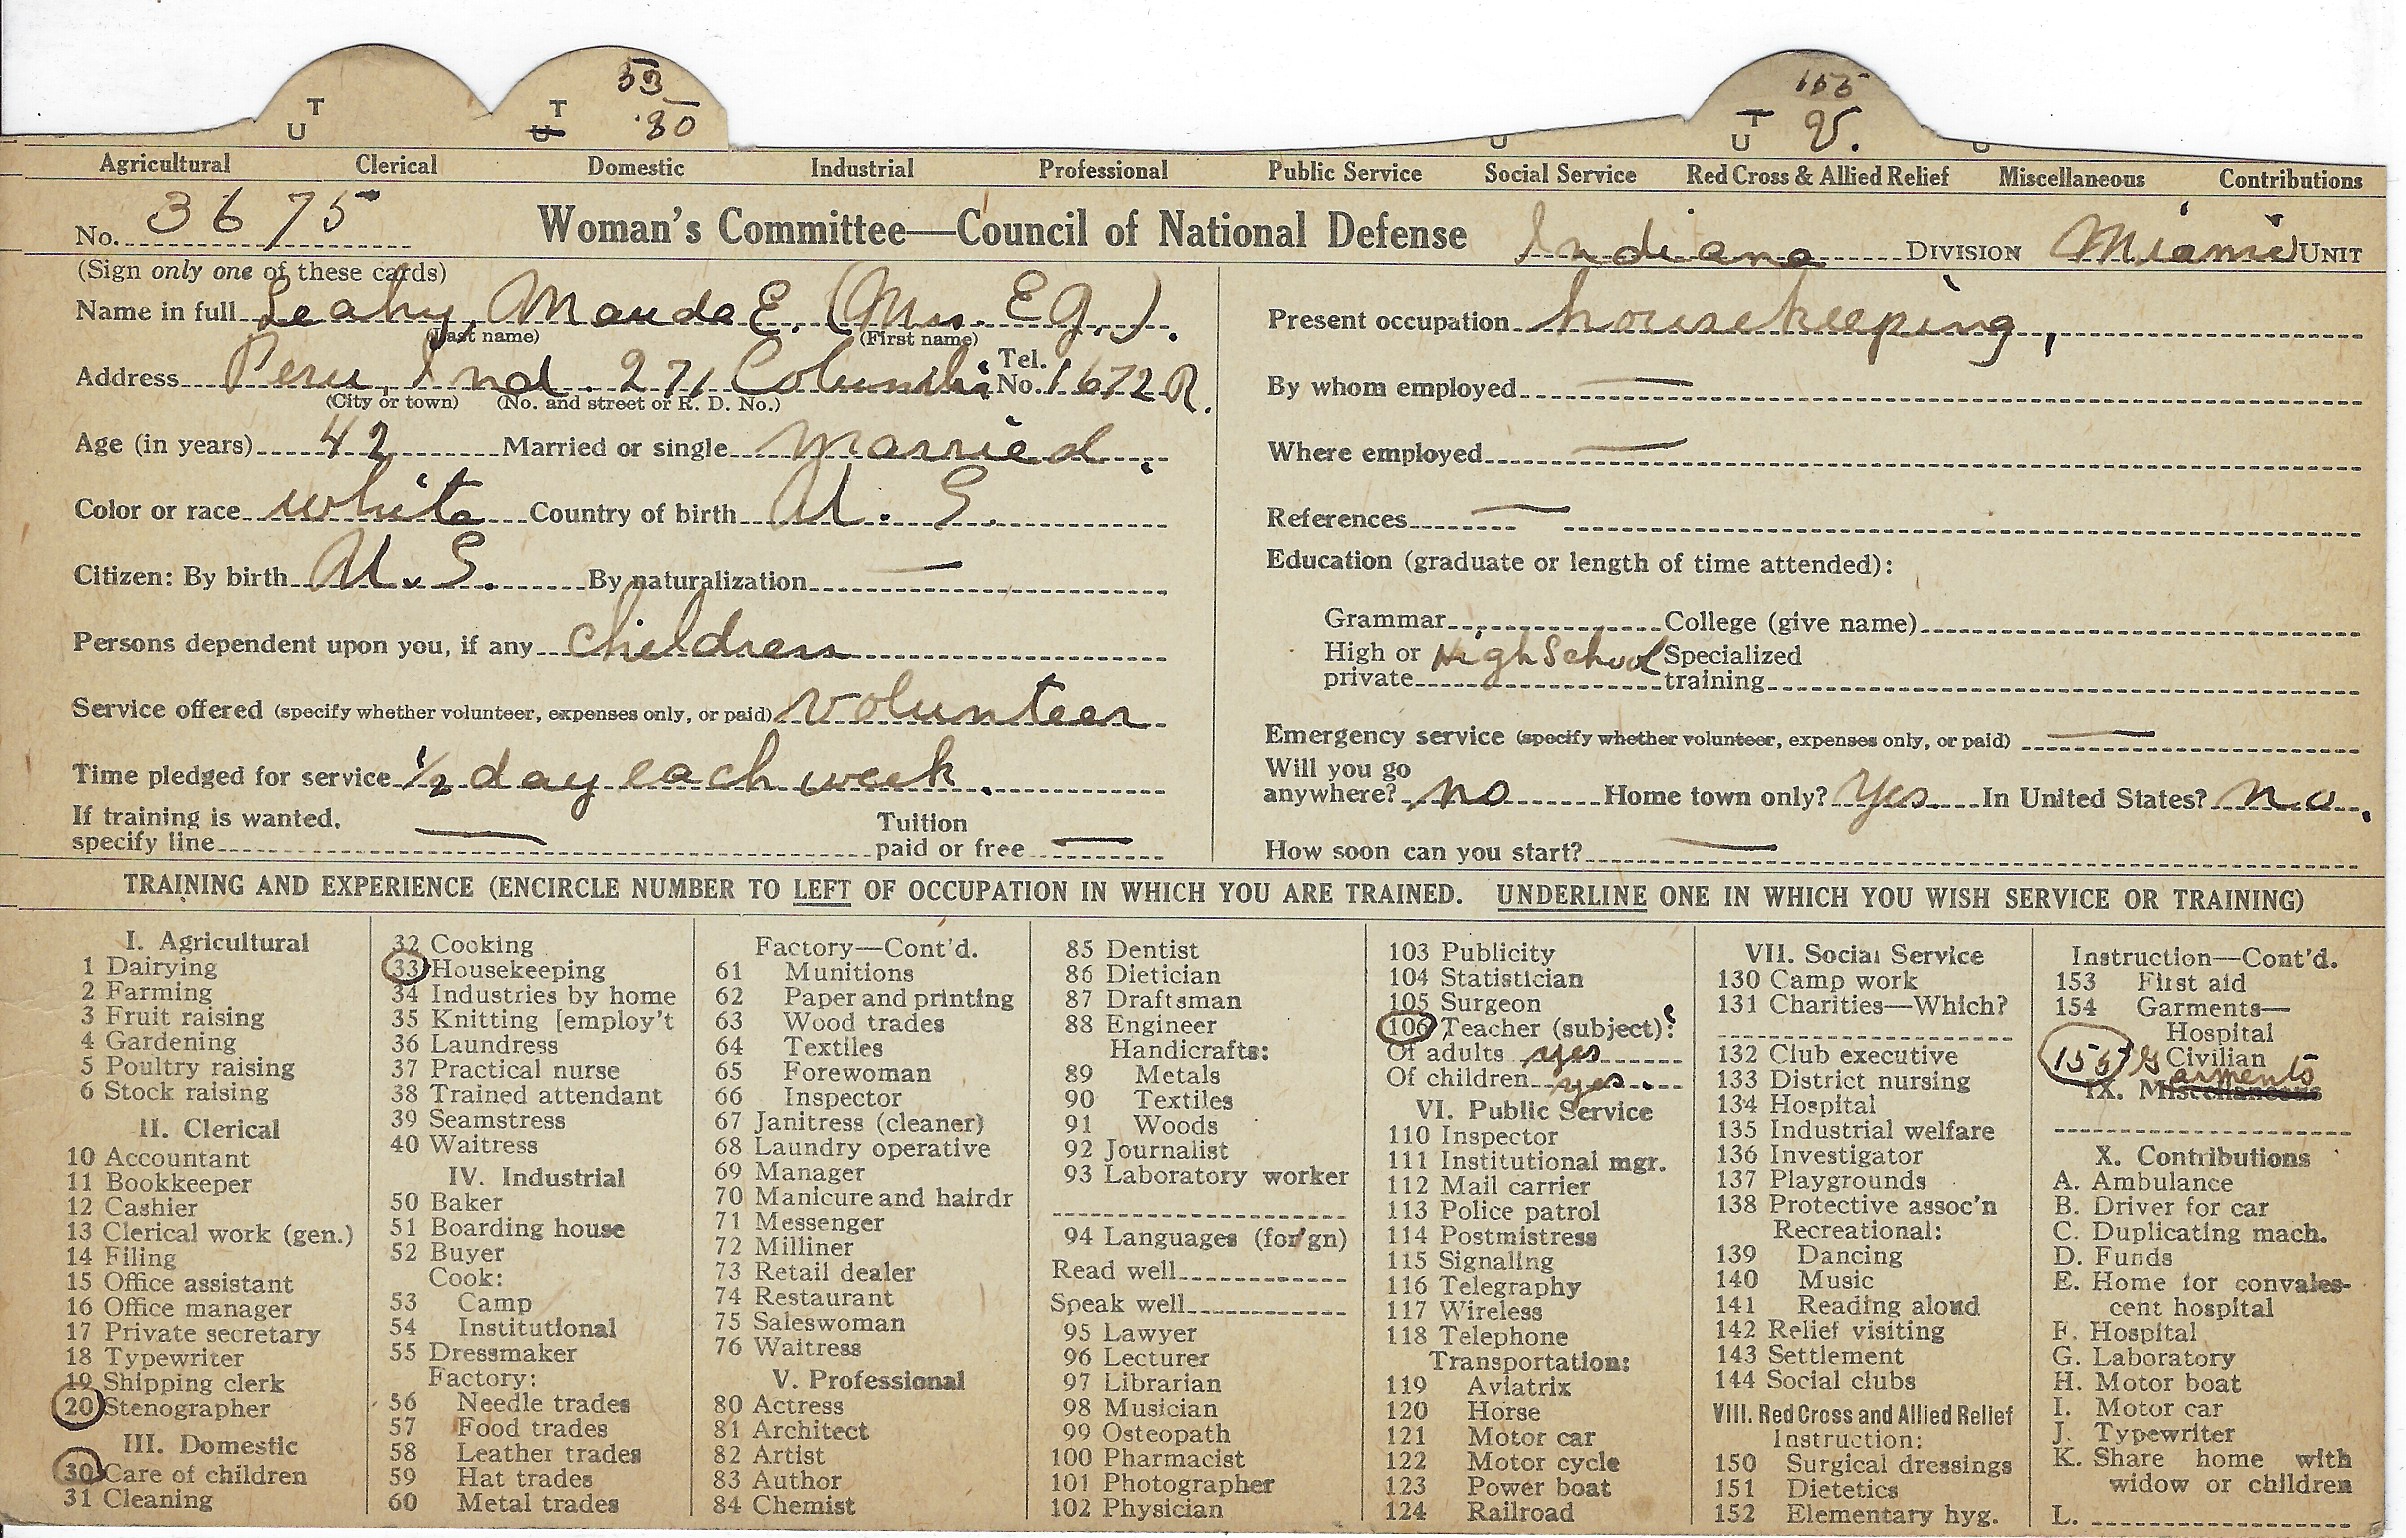 T
U
T
U
33
30
155
T
U
V.
U
U
Agricultural Clerical Domestic Industrial Professional Public Service Social Service Red Cross & Allied Relief Miscellaneous Contributions
No. 3675 Woman's Committee—Council of National Defense Indiana DIVISION Miami UNIT
(Sign only one of these cards)
Name in full Leahy, Maude E. (Mrs. E G.).
(Last name) (First name)
Address Peru, Ind. 271 Columbia Tel. No. 1672 R.
(City or town) (No. and street or R. D. No.)
Age (in years) 42 Married or single married.
Color or race white Country of birth U. S.
Citizen: By birth U. S. By naturalization —
Persons dependent upon you, if any children
Service offered (specify whether volunteer, expenses only, or paid) volunteer
Time pledged for service 1/2 day each week.
If training is wanted, specify line — Tuition paid or free —
Present occupation housekeeping,
By whom employed —
Where employed —
References —
Education (graduate or length of time attended):
Grammar College (give name)
High or private High School Specialized training
Emergency service (specify whether volunteer, expenses only, or paid) —
Will you go anywhere? no Home town only? Yes In United States? no.
How soon can you start? —
TRAINING AND EXPERIENCE (ENCIRCLE NUMBER TO LEFT OF OCCUPATION IN WHICH YOU ARE TRAINED. UNDERLINE ONE IN WHICH YOU WISH SERVICE OR TRAINING)
I. Agricultural
1 Dairying
2 Farming
3 Fruit raising
4 Gardening
5 Poultry raising
6 Stock raising
II. Clerical
10 Accountant
11 Bookkeeper
12 Cashier
13 Clerical work (gen.)
14 Filing
15 Office assistant
16 Office manager
17 Private secretary
18 Typewriter
19 Shipping clerk
20 Stenographer
III. Domestic
30 Care of children
31 Cleaning
32 Cooking
33 Housekeeping
34 Industries by home
35 Knitting [employ't
36 Laundress
37 Practical nurse
38 Trained attendant
39 Seamstress
40 Waitress
IV. Industrial
50 Baker
51 Boarding house
52 Buyer
Cook:
53 Camp
54 Institutional
55 Dressmaker
Factory:
56 Needle trades
57 Food trades
58 Leather trades
59 Hat trades
60 Metal trades
Factory—Cont'd.
61 Munitions
62 Paper and printing
63 Wood trades
64 Textiles
65 Forewoman
66 Inspector
67 Janitress (cleaner)
68 Laundry operative
69 Manager
70 Manicure and hairdr
71 Messenger
72 Milliner
73 Retail dealer
74 Restaurant
75 Saleswoman
76 Waitress
V. Professional
80 Actress
81 Architect
82 Artist
83 Author
84 Chemist
85 Dentist
86 Dietician
87 Draftsman
88 Engineer
Handicrafts:
89 Metals
90 Textiles
91 Woods
92 Journalist
93 Laboratory worker
94 Languages (for'gn)
Read well
Speak well
95 Lawyer
96 Lecturer
97 Librarian
98 Musician
99 Osteopath
100 Pharmacist
101 Photographer
102 Physician
103 Publicity
104 Statistician
105 Surgeon
106 Teacher (subject):
Of adults yes
Of children yes
VI. Public Service
110 Inspector
111 Institutional mgr.
112 Mail carrier
113 Police patrol
114 Postmistress
115 Signaling
116 Telegraphy
117 Wireless
118 Telephone
Transportation:
119 Aviatrix
120 Horse
121 Motor car
122 Motor cycle
123 Power boat
124 Railroad
VII. Social Service
130 Camp work
131 Charities—Which?
132 Club executive
133 District nursing
134 Hospital
135 Industrial welfare
136 Investigator
137 Playgrounds
138 Protective assoc'n
Recreational:
139 Dancing
140 Music
141 Reading aloud
142 Relief visiting
143 Settlement
144 Social clubs
VIII. Red Cross and Allied Relief
Instruction:
150 Surgical dressings
151 Dietetics
152 Elementary hyg.
Instruction—Cont'd.
153 First aid
154 Garments—
Hospital
Civilian
155 Garments
IX. Miscellaneous
X. Contributions
A. Ambulance
B. Driver for car
C. Duplicating mach.
D. Funds
E. Home for convales-
cent hospital
F. Hospital
G. Laboratory
H. Motor boat
I. Motor car
J. Typewriter
K. Share home with
widow or children
L.